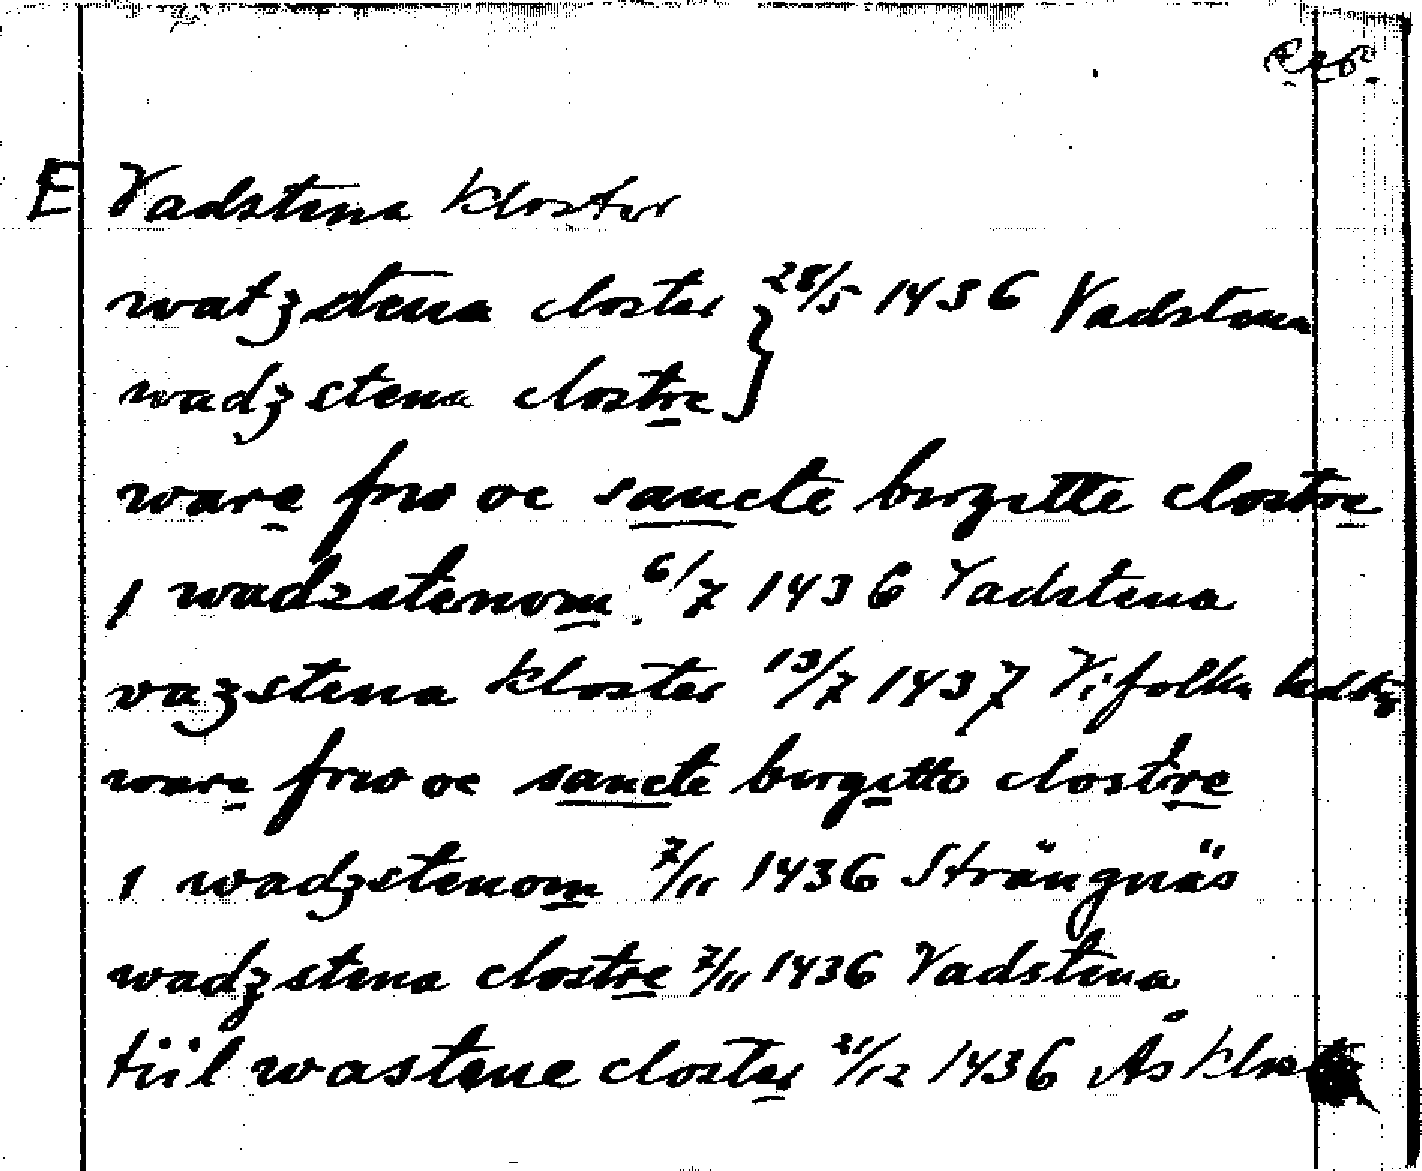 E Vadstena kloster
watzstena closter } 28/5 1436 Vadstena
wadzstena clostre
ware frw oc sancte birgitte clostre
j wadzstenom 6/7 1436 Vadstena
vazstena kloster 13/7 1437 Vifolka
ware frw oc sancte birgitto clostre
i wadzstenom 7/11 1436 Strängnäs
wadzstena clostre 7/11 1436 Vadstena
tiil wastene closter 21/12 1436 Ås